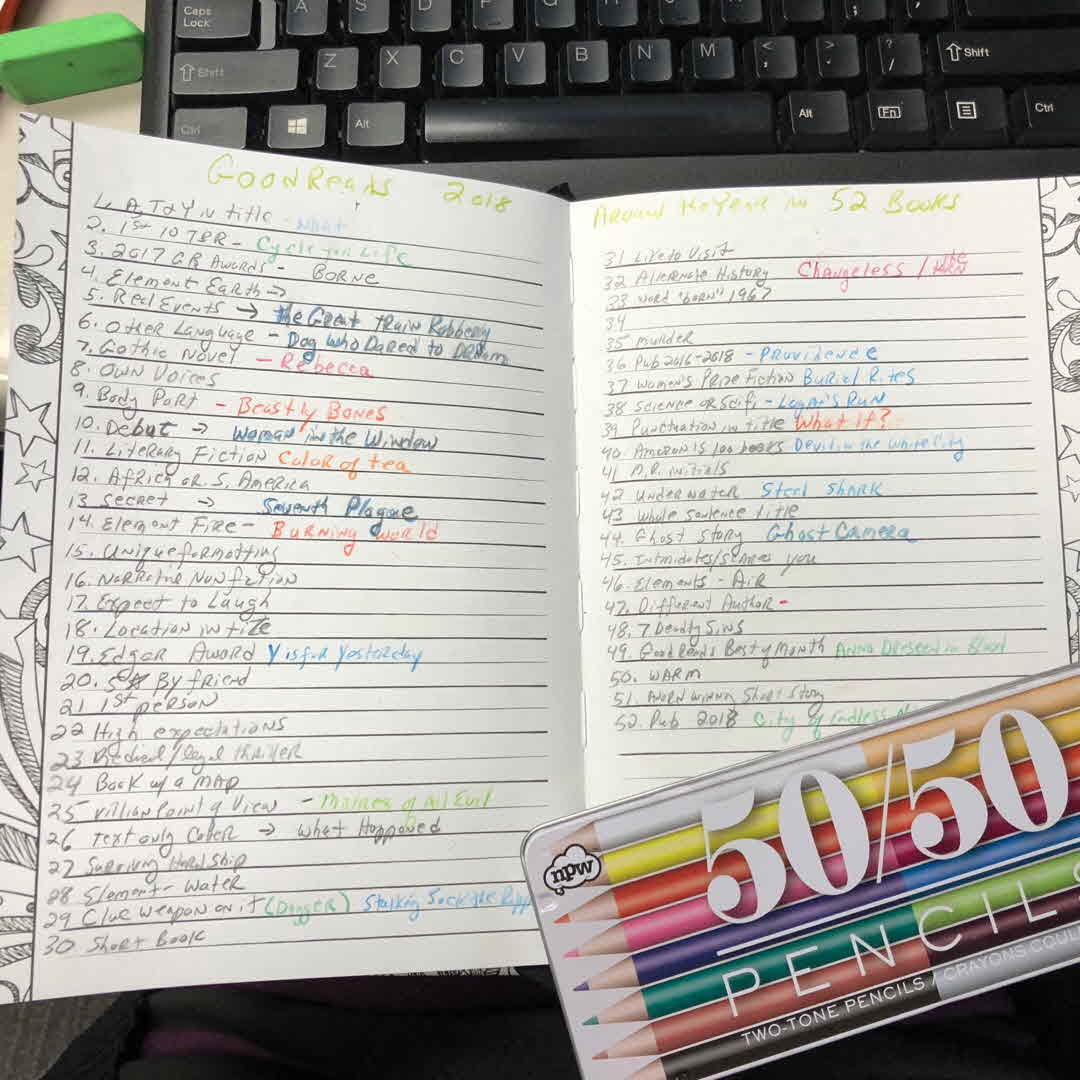 Caps Lock
A S D F
Shift Z X C V B N M < , > . ? / Shift
Ctrl Alt Alt Fn Ctrl
GOODREADS 2018
1. A, T or Y in title - What
2. 1st 10 TBR - Cycle for Life
3. 2017 GR Awards - BORNE
4. Element Earth →
5. Real Events → the Great Train Robbery
6. Other Language - Dog Who Dared to Dream
7. Gothic Novel - Rebecca
8. Own Voices
9. Body Part - Beastly Bones
10. Debut → Woman in the Window
11. Literary Fiction Color of tea
12. Africa or S. America
13 Secret → Seventh Plague
14. Element Fire - Burning World
15. Unique formatting
16. Narrative Nonfiction
17. Expect to Laugh
18. Location in title
19. Edgar Award Y is for Yesterday
20. 5☆ By friend
21 1st person
22 High expectations
23 Medical/legal thriller
24 Book w/ a map
25 Villian Point of View - Malice of All Evil
26 Text only Cover → What Happened
27 Surviving Hardship
28 Element - Water
29 Clue weapon on it (Dagger) Stalking Jack the Ripp
30 Short Book
Around the Year in 52 Books
31 Like to Visit
32 Alternate History Changeless /
33 Word "born" 1967
34
35 murder
36 Pub 2016-2018 - PROVIDENCE
37 Women's Prize Fiction Burial Rites
38 Science or Scifi - Logan's Run
39 Punctuation in title What If?
40. Amazon's 100 books Devil in the White City
41 initials
42 Underwater Steel Shark
43 Whole Sentence title
44. Ghost Story Ghost Camera
45. Intimidates/scares you
46. Elements - Air
47. Different Author -
48. 7 Deadly Sins
49. GoodReads Best of Month Anna Dressed in Blood
50. WARM
51. winning Short Story
52. Pub 2018 City of Endless
npw
50/50
PENCILS
TWO-TONE PENCILS / CRAYONS COUL